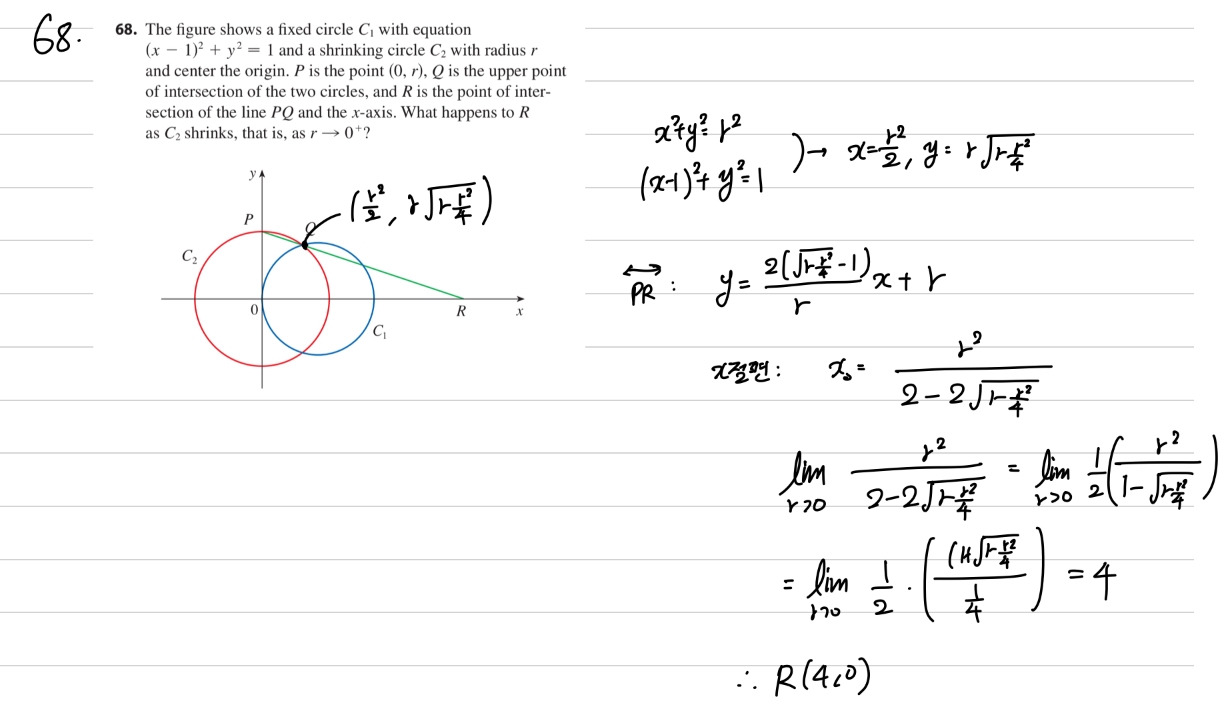 68.
68. The figure shows a fixed circle C₁ with equation
(x − 1)² + y² = 1 and a shrinking circle C₂ with radius r
and center the origin. P is the point (0, r), Q is the upper point
of intersection of the two circles, and R is the point of inter-
section of the line PQ and the x-axis. What happens to R
as C₂ shrinks, that is, as r → 0⁺?
y
P
Q
(r²/2, r√(1-r²/4))
C₂
0
R
x
C₁
x²+y²=r²
(x-1)²+y²=1
)→ x=r²/2, y=r√(1-r²/4)
PR : y = 2(√(1-r²/4) -1)/r x + r
x절편: x₀ = r²/(2-2√(1-r²/4))
lim r→0 r²/(2-2√(1-r²/4)) = lim r→0 1/2 (r²/(1-√(1-r²/4)))
= lim r→0 1/2 · ((1+√(1-r²/4))/(1/4)) = 4
∴ R(4,0)